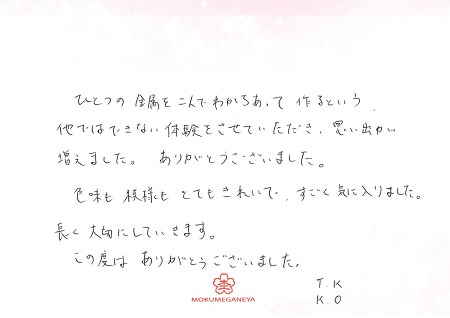 ひとつの金属を二人でわかちあって作るという、
他ではできない体験をさせていただき、思い出が
増えました。ありがとうございました。
色味も模様もとてもきれいで、すごく気に入りました。
長く大切にしていきます。
この度はありがとうございました。
T.K
K.O
MOKUMEGANEYA